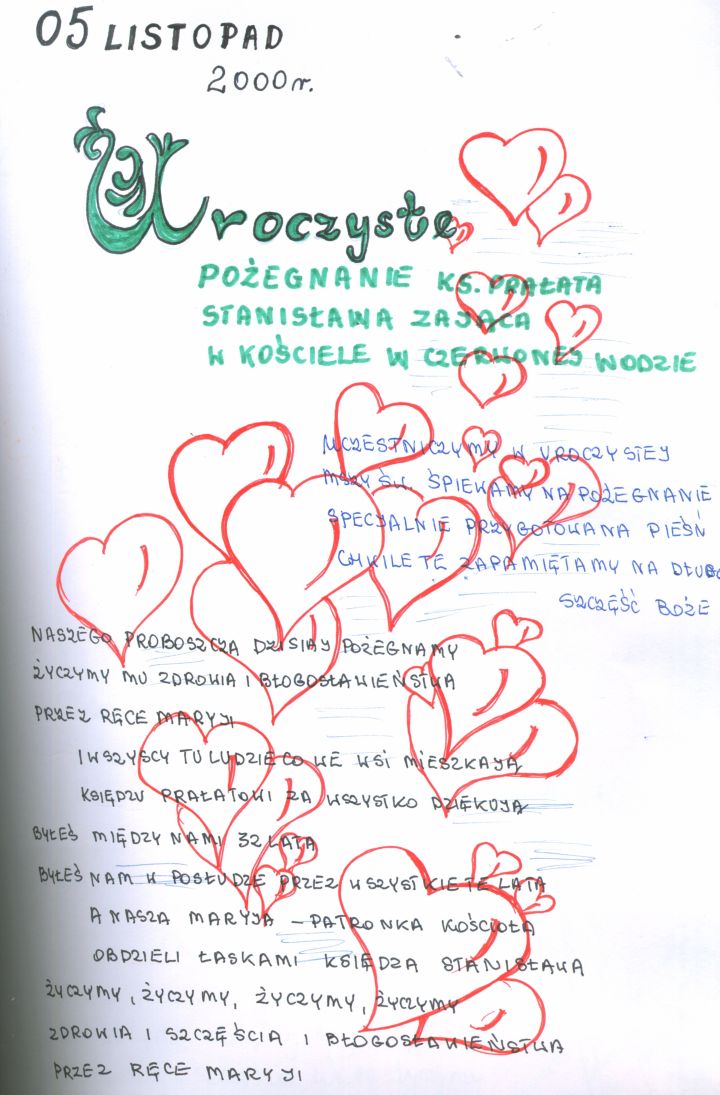 05 LISTOPAD
2000 r.
Uroczyste
POŻEGNANIE KS. PRAŁATA
STANISŁAWA ZAJĄCA
W KOŚCIELE W CZERWONEJ WODZIE
UCZESTNICZYMY W UROCZYSTEJ
MSZY ŚW. ŚPIEWAMY NA POŻEGNANIE
SPECJALNIE PRZYGOTOWANA PIEŚŃ
CHWILE TE ZAPAMIĘTAMY NA DŁUGO
SZCZĘŚĆ BOŻE
NASZEGO PROBOSZCZA DZISIAJ POŻEGNAMY
ŻYCZYMY MU ZDROWIA I BŁOGOSŁAWIEŃSTWA
PRZEZ RĘCE MARYJI
I WSZYSCY TU LUDZIE CO WE WSI MIESZKAJĄ
KSIĘDZU PRAŁATOWI ZA WSZYSTKO DZIĘKUJĄ
BYŁEŚ MIĘDZY NAMI 32 LATA
BYŁEŚ NAM W POSŁUDZE PRZEZ WSZYSTKIE TE LATA
A NASZA MARYJA – PATRONKA KOŚCIOŁA
OBDZIELI ŁASKAMI KSIĘDZA STANISŁAWA
ŻYCZYMY, ŻYCZYMY, ŻYCZYMY, ŻYCZYMY
ZDROWIA I SZCZĘŚCIA I BŁOGOSŁAWIEŃSTWA
PRZEZ RĘCE MARYJI